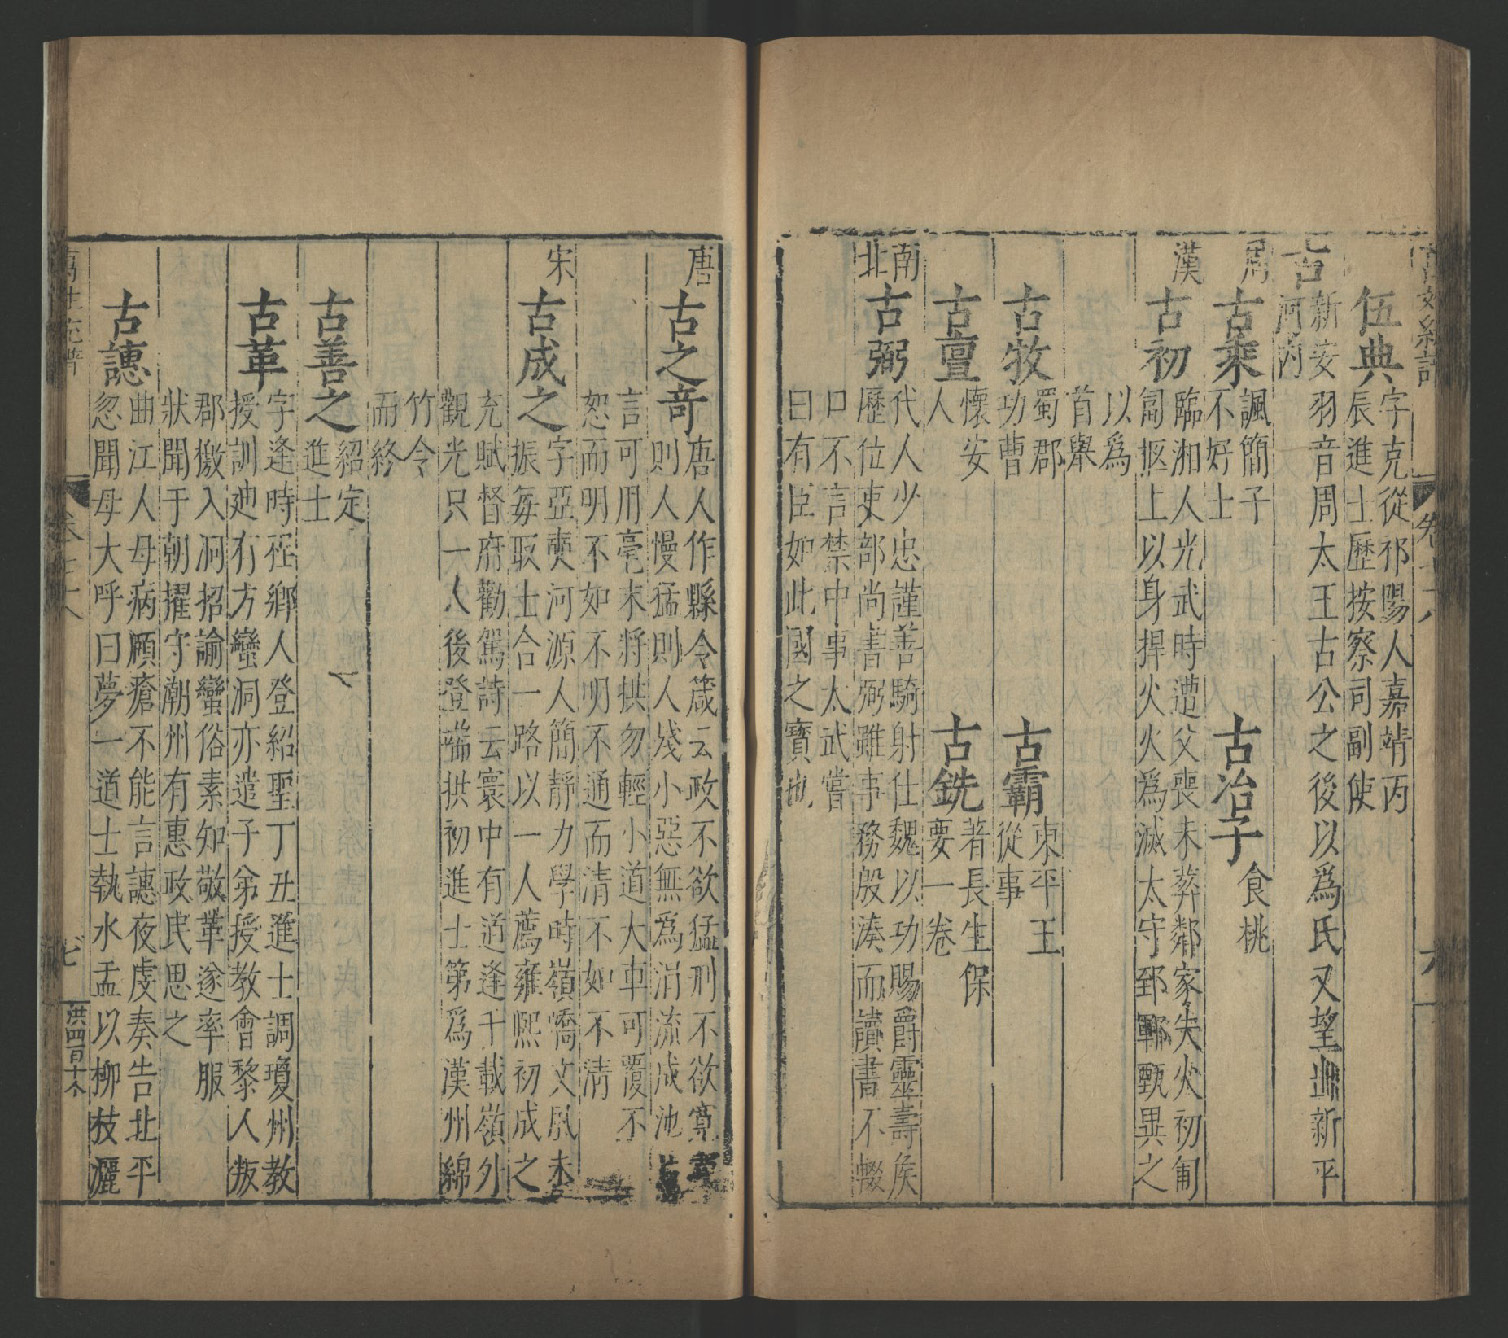 伍典 字克從祁陽人嘉靖丙
辰進士歷按察司副使
古 新安羽音周太王古公之後以爲氏又望出新平
河内
周 古乘 諷簡子
不好士
古冶子 食桃
漢 古初 臨湘人光武時遭父喪未葬鄰家失火初匍
匐柩上以身捍火火爲滅太守郅鄆甄異之
以爲
首舉
古牧 蜀郡
功曹
古霸 東平王
從事
古亶 懷安
人
古銑 著長生保
要一卷
南北 古弼 代人少忠謹善騎射仕魏以功賜爵靈壽侯
歷位吏部尚書弼雖事務殷湊而讀書不輟
口不言禁中事太武嘗
曰有臣如此國之寶也
卷
六
唐 古之奇 唐人作縣令箴云政不欲猛刑不欲寛
則人人慢猛則人殘小惡無爲涓流成池
言可用毫末將拱勿輕小道大車可覆不
恕而明不如不明不通而清不如不清
宋 古成之 字亞奭河源人簡靜力學時嶺嶠文風未
振毎取士合一路以一人薦雍熙初成之
充賦督府勸駕詩云寰中有道逢千載嶺外
觀光只一人後登端拱初進士第爲漢州綿
竹令
而終
古善之 紹定
進士
古革 字逢時在鄉人登紹聖丁丑進士調瓊州教
授訓廸有方蠻洞亦遣子弟授教會黎人叛
郡檄入洞招諭蠻俗素知敬革遂率服
狀聞于朝擢守潮州有惠政民思之
古譓 曲江人母病頋瘡不能言譓夜虔奏告北平
忽聞母大呼曰夢一道士執水盂以柳枝灑
萬姓統譜
七
洪四百十个